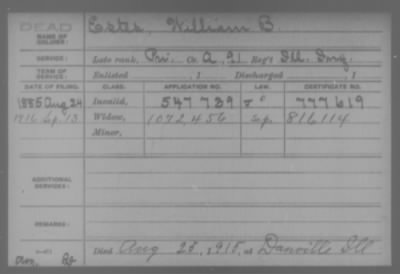 DEAD
NAME OF SOLDIER: Estes, William B.
SERVICE: Late rank, Pri. Co. A, 91 Reg't Ill. Inf.
TERM OF SERVICE: Enlisted , 1 Discharged , 1
DATE OF FILING. CLASS. APPLICATION NO. LAW. CERTIFICATE NO.
1885 Aug 24 Invalid, 547739 777619
1916 Sep. 13 Widow, 1072,456 816114
Minor,
ADDITIONAL SERVICES:
REMARKS:
Died Aug 25, 1915, at Danville Ill